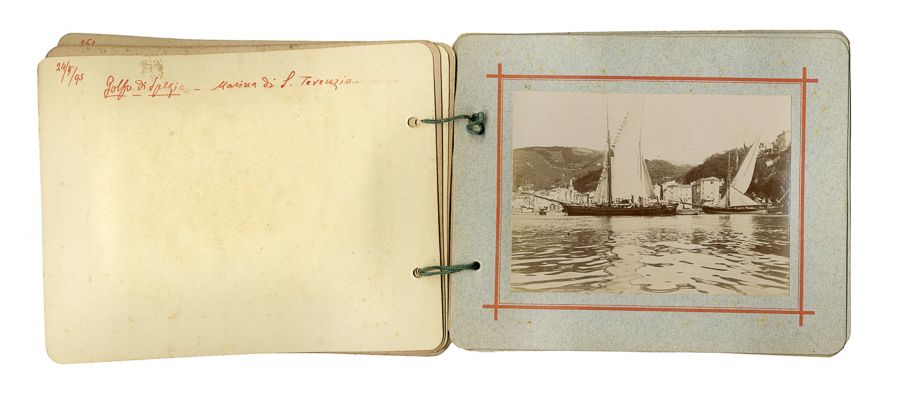 261
24/5/95
Golfo di Spezia - Marina di S. Terenzio